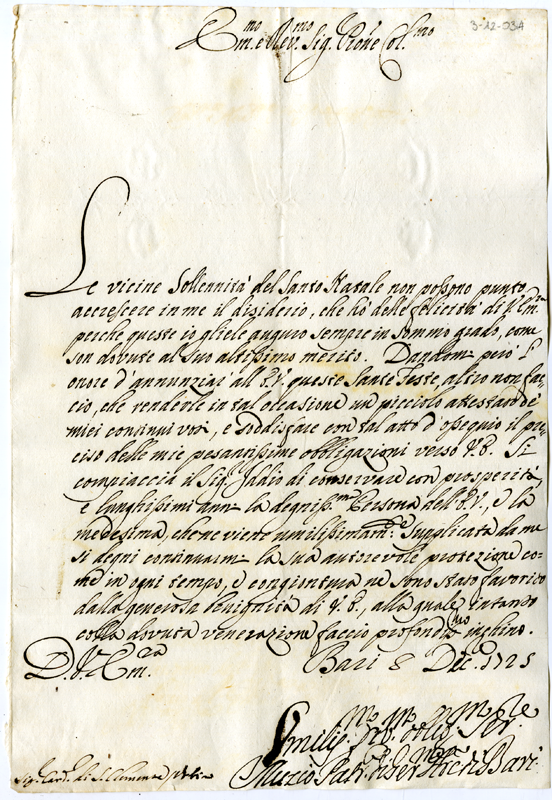 3-12-034
Em.mo e Rev.mo Sig. Prone Col.mo
Le vicine Sollennità del Santo Natale non possono punto
accrescere in me il disiderio, che hò delle felicità di V. Em.za
perche queste io gliele auguro sempre in sommo grado, come
son dovute al suo altissimo merito. Dandomi però l'
onore d'annunziar all'E.V. queste Sante Feste, altro non fac
cio, che renderle in tal occasione un picciolo attestato de'
miei continui voti, e soddisfare con tal atto d'ossequio il pre
ciso delle mie pesantissime obbligazioni verso V.E. Si
compiaccia il Sig.r Iddio di conservare con prosperità,
e lunghissimi anni la degniss.ma Persona dell'E.V., e la
medesima, che ne viene umilissimam.te supplicata da me
si degni continuarmi la sua autorevole protezione co-
me in ogni tempo, e congiuntura ne sono stato favorito
dalla generosa benignità di V.E., alla quale intanto
colla dovuta venerazione faccio profondis.mo inchino.
D. V. Em.za Bari 8 Dec. 1725
Umiliss.mo
Muzio Bari
Sig. Card. di S. Clemente